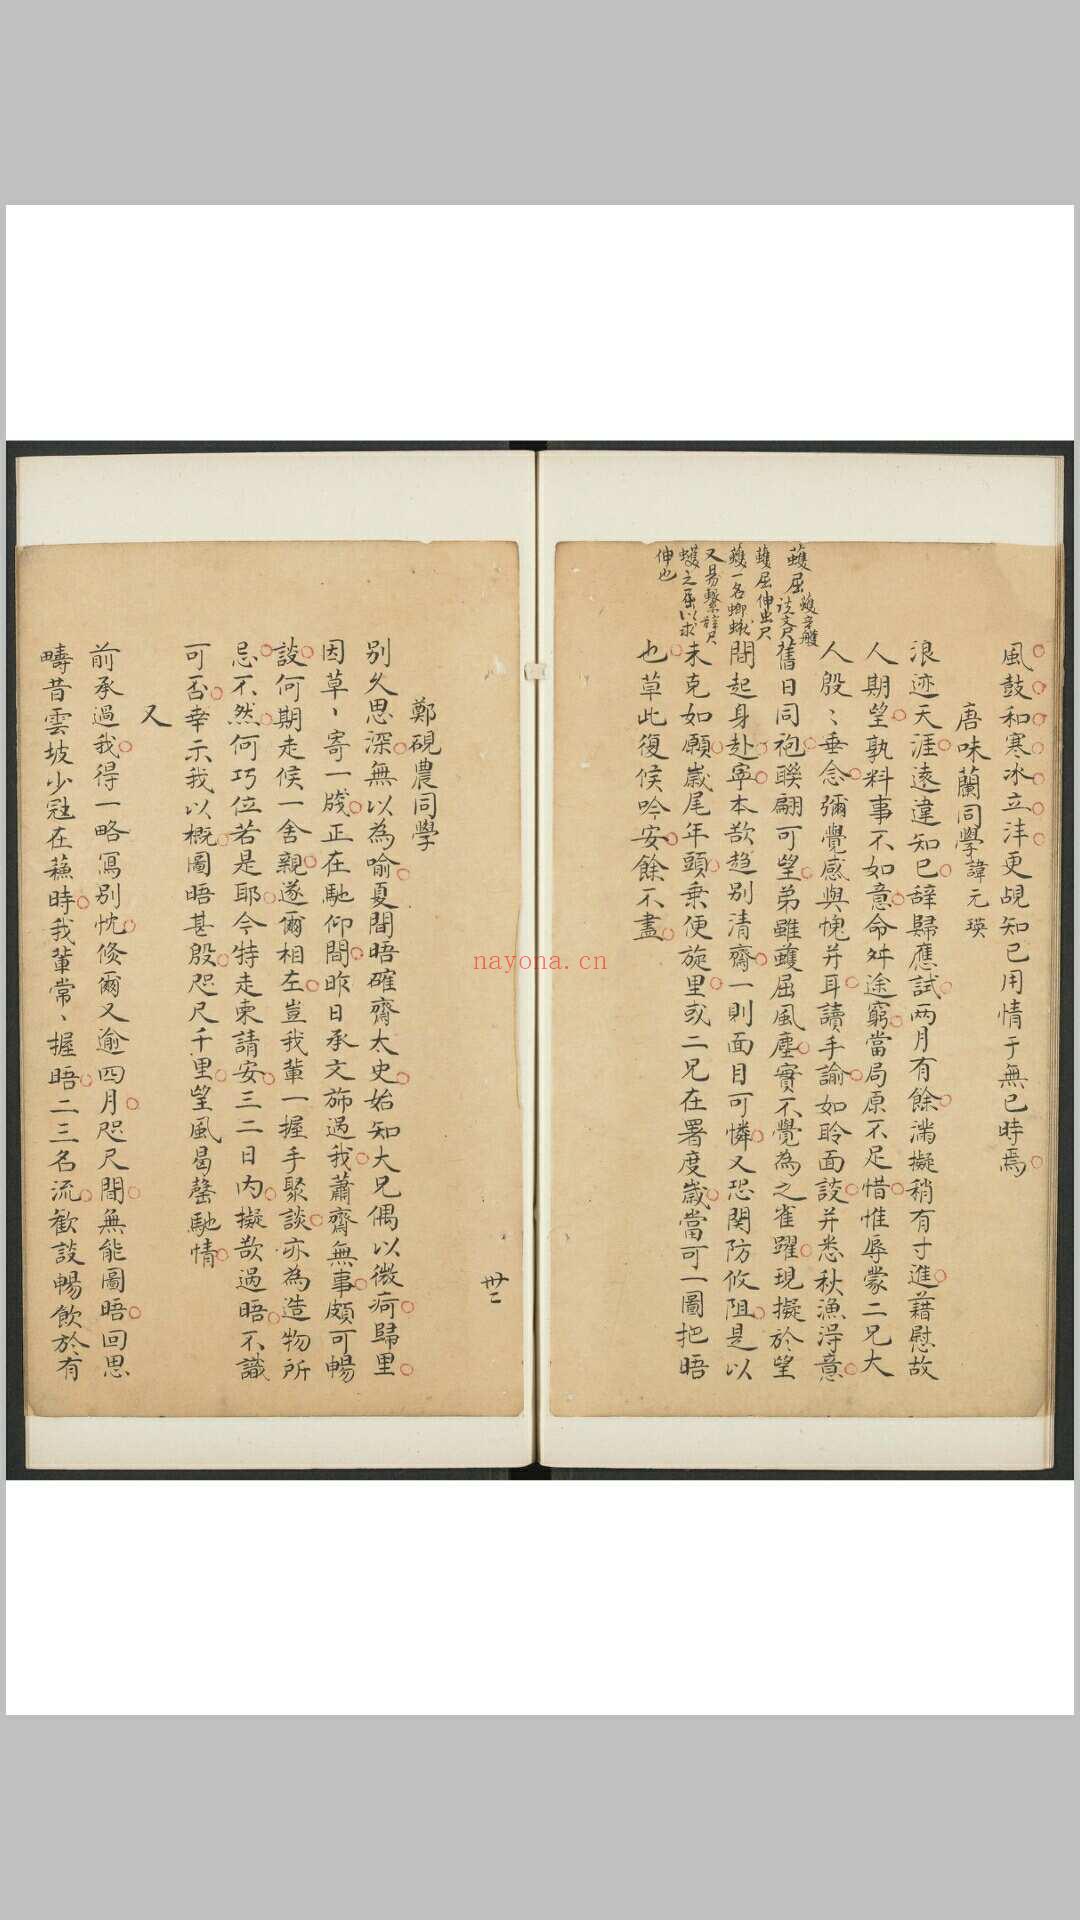 風鼓和寒冰立沣更覘知已用情于無已時焉
唐味蘭同學諱元瑛
浪迹天涯遠違知已辭歸應試两月有餘湍擬稍有寸進藉慰故
人期望孰料事不如意命舛途窮當局原不足惜惟辱蒙二兄大
人殷〻垂念彌覺感與愧并耳讀手諭如聆面談并悉秋漁得意
舊日同袍聯翩可望弟雖蠖屈風塵實不覺為之雀躍現擬於望
間起身赴寧本欲趋别清齋一則面目可憐又恐関防攸阻是以
未克如願歲尾年頭乗便旋里或二兄在署度歲當可一圖把晤
也草此復侯吟安餘不盡
蠖屈
説文尺
蠖屈伸虫尺
蠖一名蝍蛾
又易繫辞尺
蠖之屈以求
伸也
鄭硯農同學
别久思深無以為喻夏間晤確齋太史始知大兄偶以微疴歸里
因草〻寄一牋正在馳仰間昨日承文斾過我蕭齋無事頗可暢
談何期走侯一舍親遂爾相左豈我輩一握手聚談亦為造物所
忌不然何巧位若是耶今特走柬請安三二日内擬欲過晤不識
可否幸示我以概圖晤甚殷咫尺千里望風曷罄馳情
又
前承過我得一略寫别忱倐爾又逾四月咫尺間無能圖晤回思
疇昔雲坡少冠在蘓時我輩常〻握晤二三名流歡談暢飲於有
卅二
nayona.cn